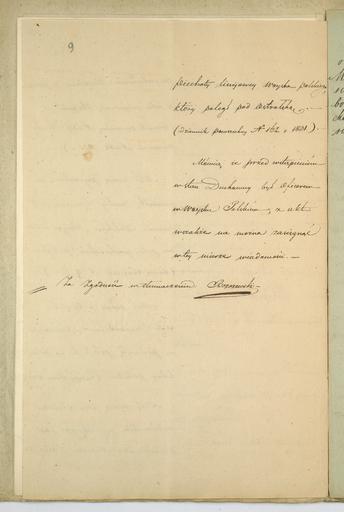 9
piechoty liniowej wojska polskiego,
który poległ pod Ostrołęką. —
(Dziennik powszechny Nº 161 z 1831). —
Mówią, że przed wstąpieniem
w stan Duchowny był oficerem
w wojsku Polskim, z akt
wszakże nie można zasięgnąć
w tej mierze wiadomości. —
Za zgodność w tłumaczeniu